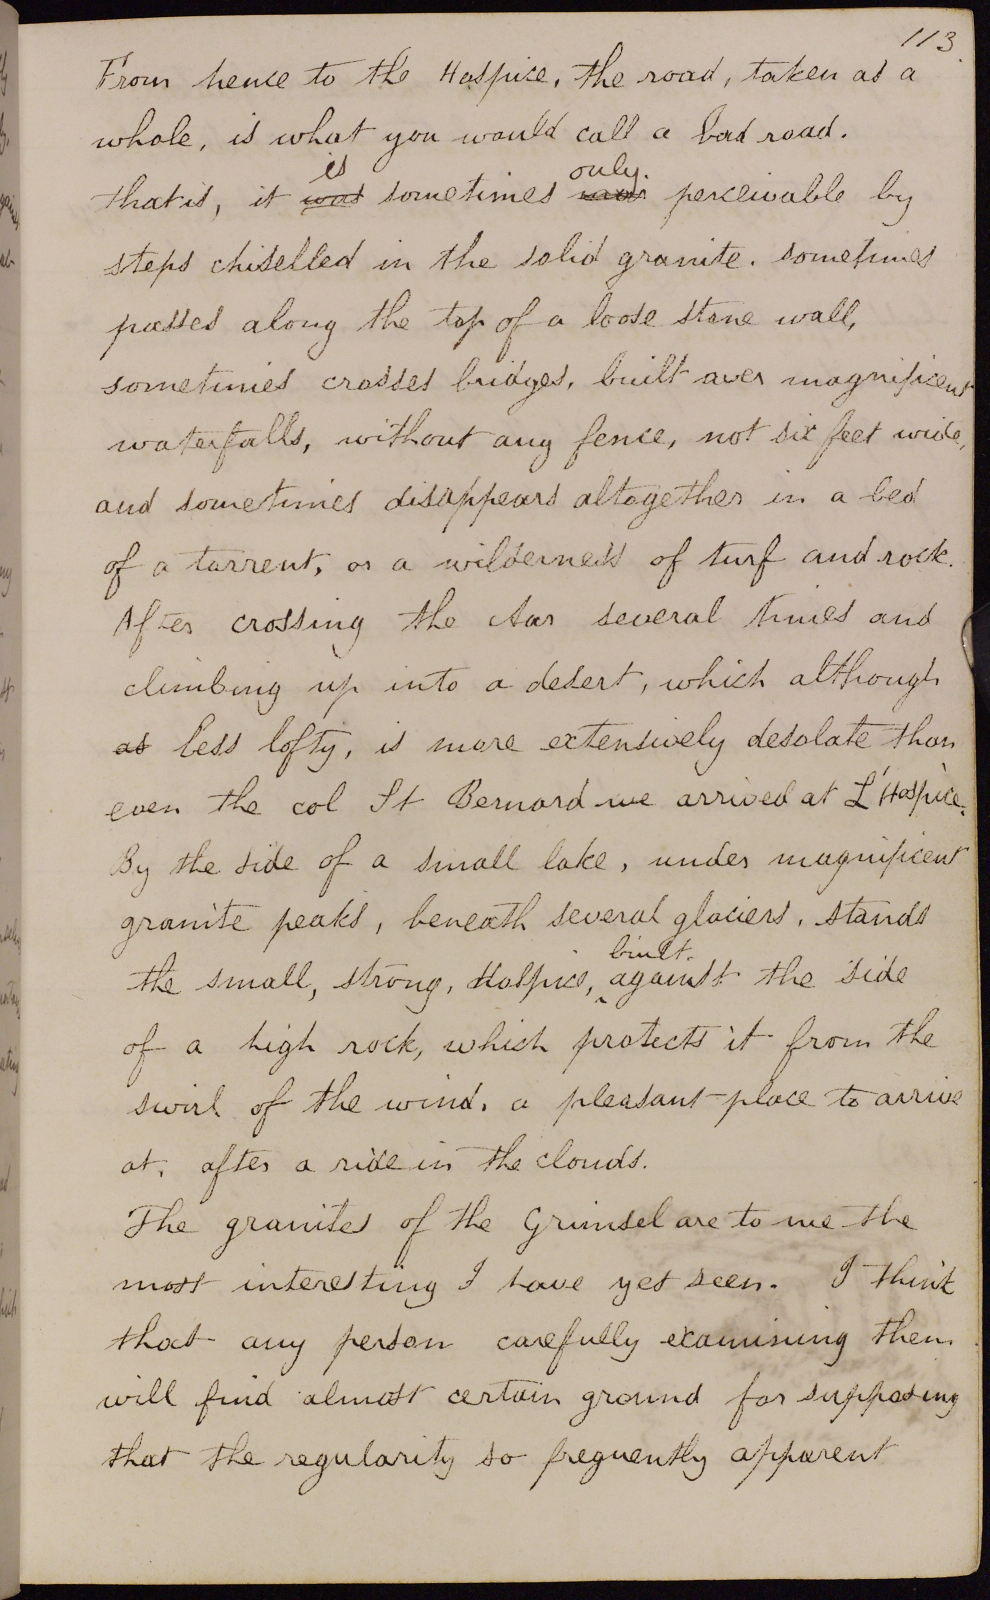 113
From hence to the Hospice, the road, taken as a
whole, is what you would call a bad road.
that is, it was is sometimes only. perceivable by
steps chiselled in the solid granite. sometimes
passes along the top of a loose stone wall,
sometimes crosses bridges, built over magnificent
waterfalls, without any fence, not six feet wide,
and sometimes disappears altogether in a bed
of a torrent, or a wilderness of turf and rock.
After crossing the Aar several times and
climbing up into a desert, which although
as less lofty, is more extensively desolate than
even the col St Bernard we arrived at L'Hospice.
By the side of a small lake, under magnificent
granite peaks, beneath several glaciers, stands
the small, strong, Hospice, built. against the side
of a high rock, which protects it from the
swirl of the wind. a pleasant place to arrive
at, after a ride in the clouds.
The granites of the Grimsel are to me the
most interesting I have yet seen. I think
that any person carefully examining them
will find almost certain ground for supposing
that the regularity so frequently apparent